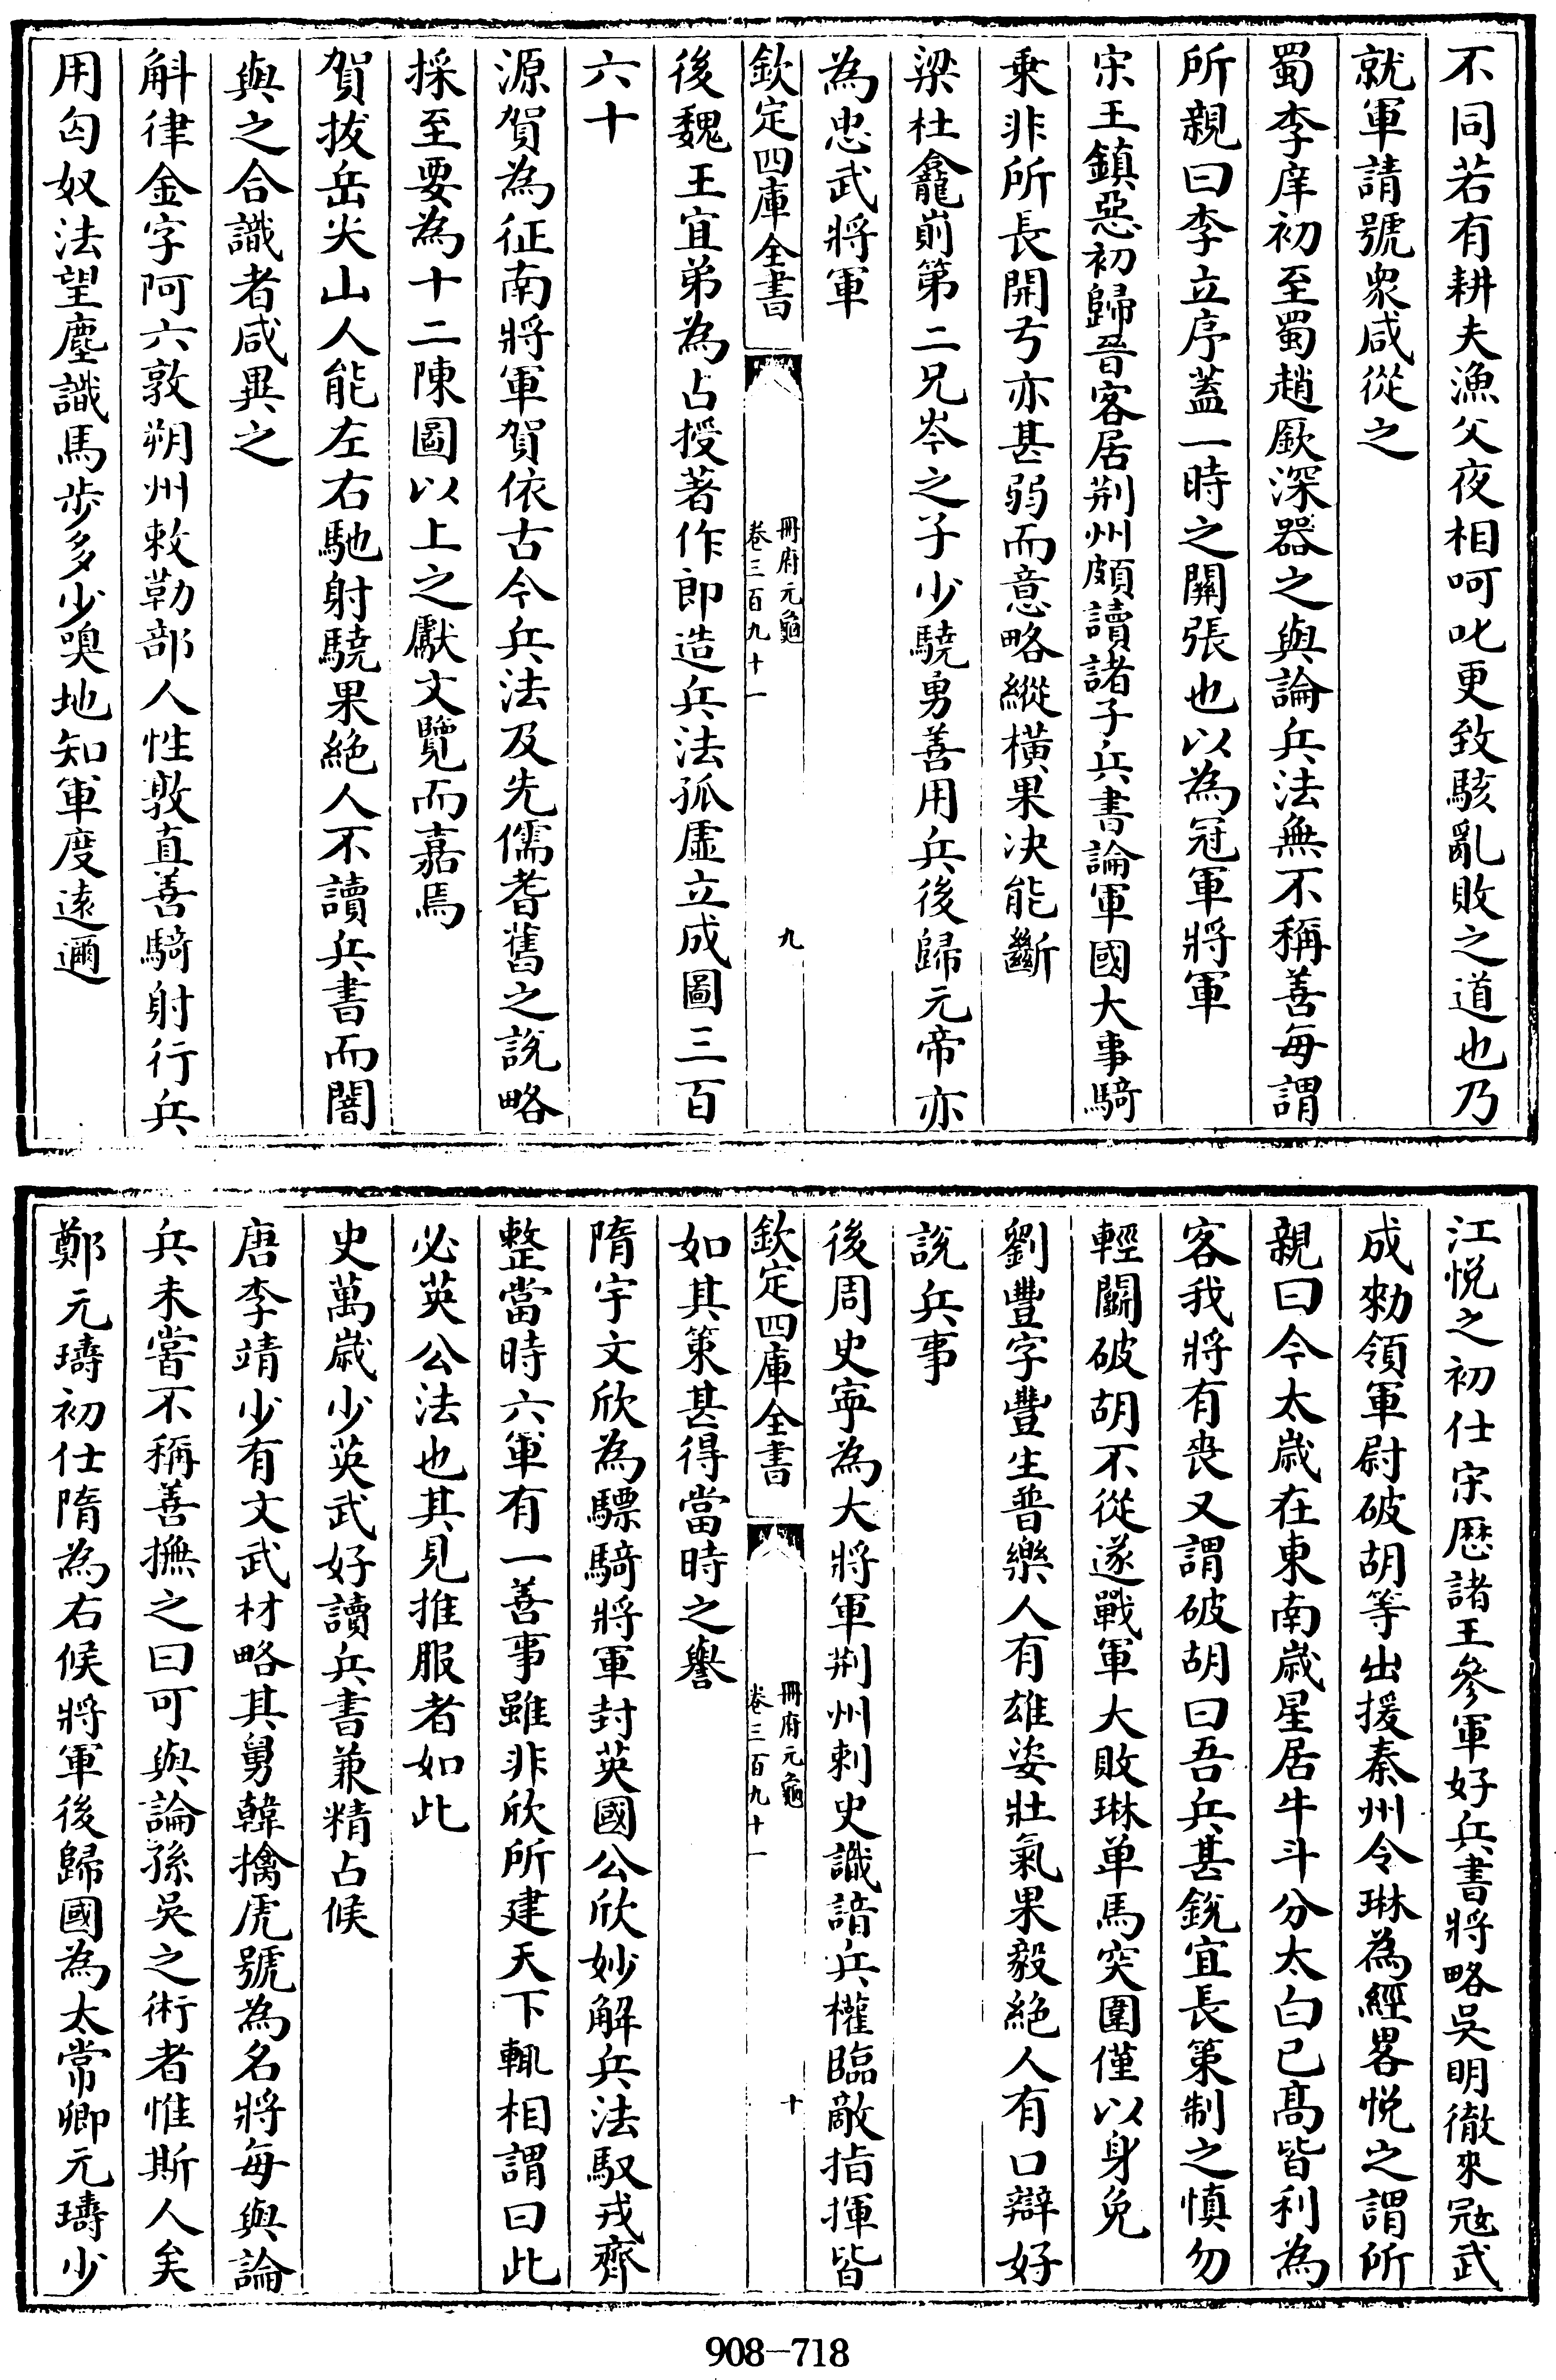 不同若有耕夫漁父夜相呵叱更致駭亂敗之道也乃
就軍請號衆咸從之
蜀李庠初至蜀趙廞深器之與論兵法無不稱善每謂
所親曰李立序蓋一時之關張也以為冠軍將軍
宋王鎮惡初歸晉客居荆州頗讀諸子兵書論軍國大事騎
乗非所長開弓亦甚弱而意略縱橫果決能斷
梁杜龕崱第二兄岑之子少驍勇善用兵後歸元帝亦
為忠武將軍
欽定四庫全書
冊府元龜
卷三百九十一
九
後魏王宜弟為占授著作郎造兵法孤虛立成圖三百
六十
源賀為征南將軍賀依古今兵法及先儒耆舊之說略
採至要為十二陳圖以上之獻文覽而嘉焉
賀拔岳尖山人能左右馳射驍果絶人不讀兵書而闇
與之合識者咸異之
斛律金字阿六敦朔州敕勒部人性敦直善騎射行兵
用匈奴法望塵識馬步多少嗅地知軍度遠邇
江悅之初仕宋歷諸王參軍好兵書將略吳明徹來冦武
成勑領軍尉破胡等出援秦州令琳為經畧悅之謂所
親曰今太歲在東南歲星居牛斗分太白已髙皆利為
客我將有喪又謂破胡曰吾兵甚銳宜長策制之慎勿
輕鬭破胡不從遂戰軍大敗琳单馬突圍僅以身免
劉豐字豐生普樂人有雄姿壯氣果毅絶人有口辯好
說兵事
後周史寧為大將軍荆州刺史識諳兵權臨敵指揮皆
欽定四庫全書
冊府元龜
卷三百九十一
十
如其策甚得當時之譽
隋宇文欣為驃騎將軍封英國公欣妙解兵法馭戎齊
整當時六軍有一善事雖非欣所建天下輒相謂曰此
必英公法也其見推服者如此
史萬歲少英武好讀兵書兼精占候
唐李靖少有文武材略其舅韓擒虎號為名將每與論
兵未嘗不稱善撫之曰可與論孫吳之術者惟斯人矣
鄭元璹初仕隋為右候將軍後歸國為太常卿元璹少
908-718